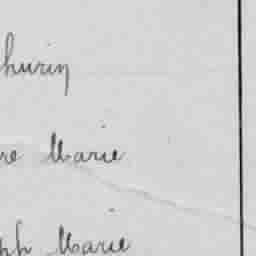 hurin
re Marie
ph Marie